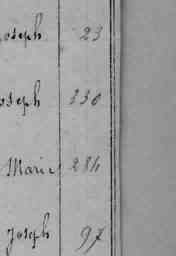 Joseph 23
Joseph 330
Marie 284
Joseph 97